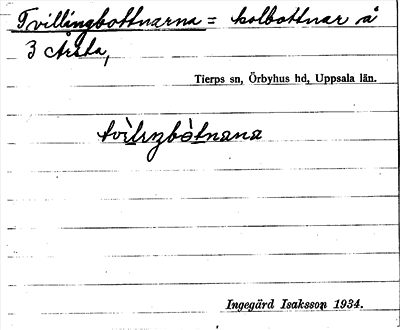 Tvillingbottnarna = kolbottnar å
3 Årsta,
Tierps sn, Örbyhus hd, Uppsala län.
Ingegärd Isaksson 1934.